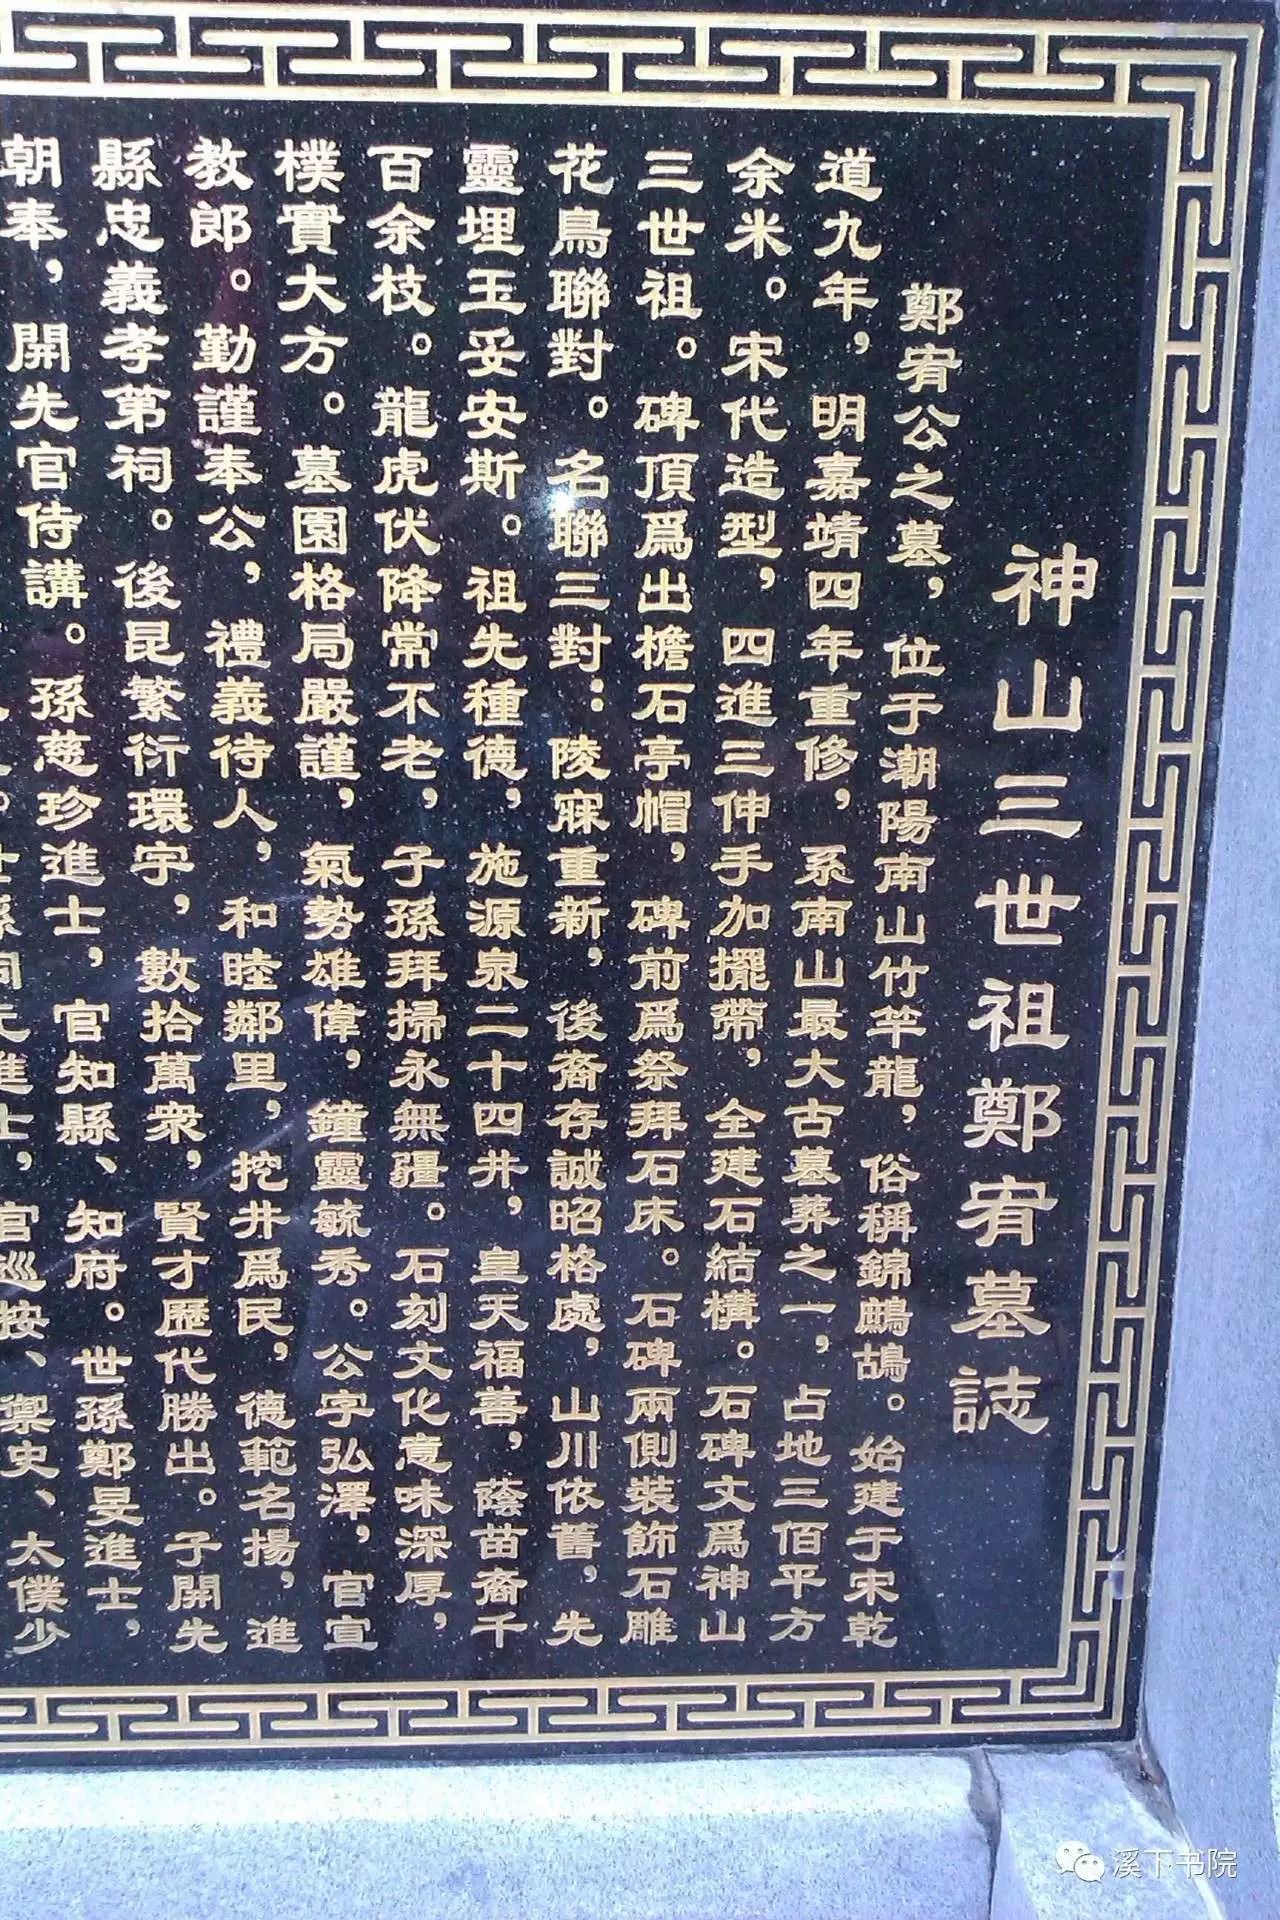 神山三世祖鄭宥墓誌
鄭宥公之墓，位于潮陽南山竹竿龍，俗稱錦鷓鴣。始建于宋乾
道九年，明嘉靖四年重修，系南山最大古墓葬之一，占地三佰平方
余米。宋代造型，四進三伸手加擺帶，全建石結構。石碑文爲神山
三世祖。碑頂爲出檐石亭帽，碑前爲祭拜石床。石碑兩側裝飾石雕
花鳥聯對。名聯三對：陵寢重新，後裔存誠昭格處，山川依舊，先
靈埋玉妥安斯。祖先種德，施源泉二十四井，皇天福善，蔭苗裔千
百余枝。龍虎伏降常不老，子孫拜掃永無疆。石刻文化意味深厚，
樸實大方。墓園格局嚴謹，氣勢雄偉，鐘靈毓秀。公字弘澤，官宣
教郎。勤謹奉公，禮義待人，和睦鄰里，挖井爲民，德範名揚，進
縣忠義孝第祠。後昆繁衍環宇，數拾萬衆，賢才歷代勝出。子開先
朝奉，開先官侍講。孫慈珍進士，官知縣、知府。世孫鄭旻進士，
進士，官巡按、禦史、太僕少
溪下书院